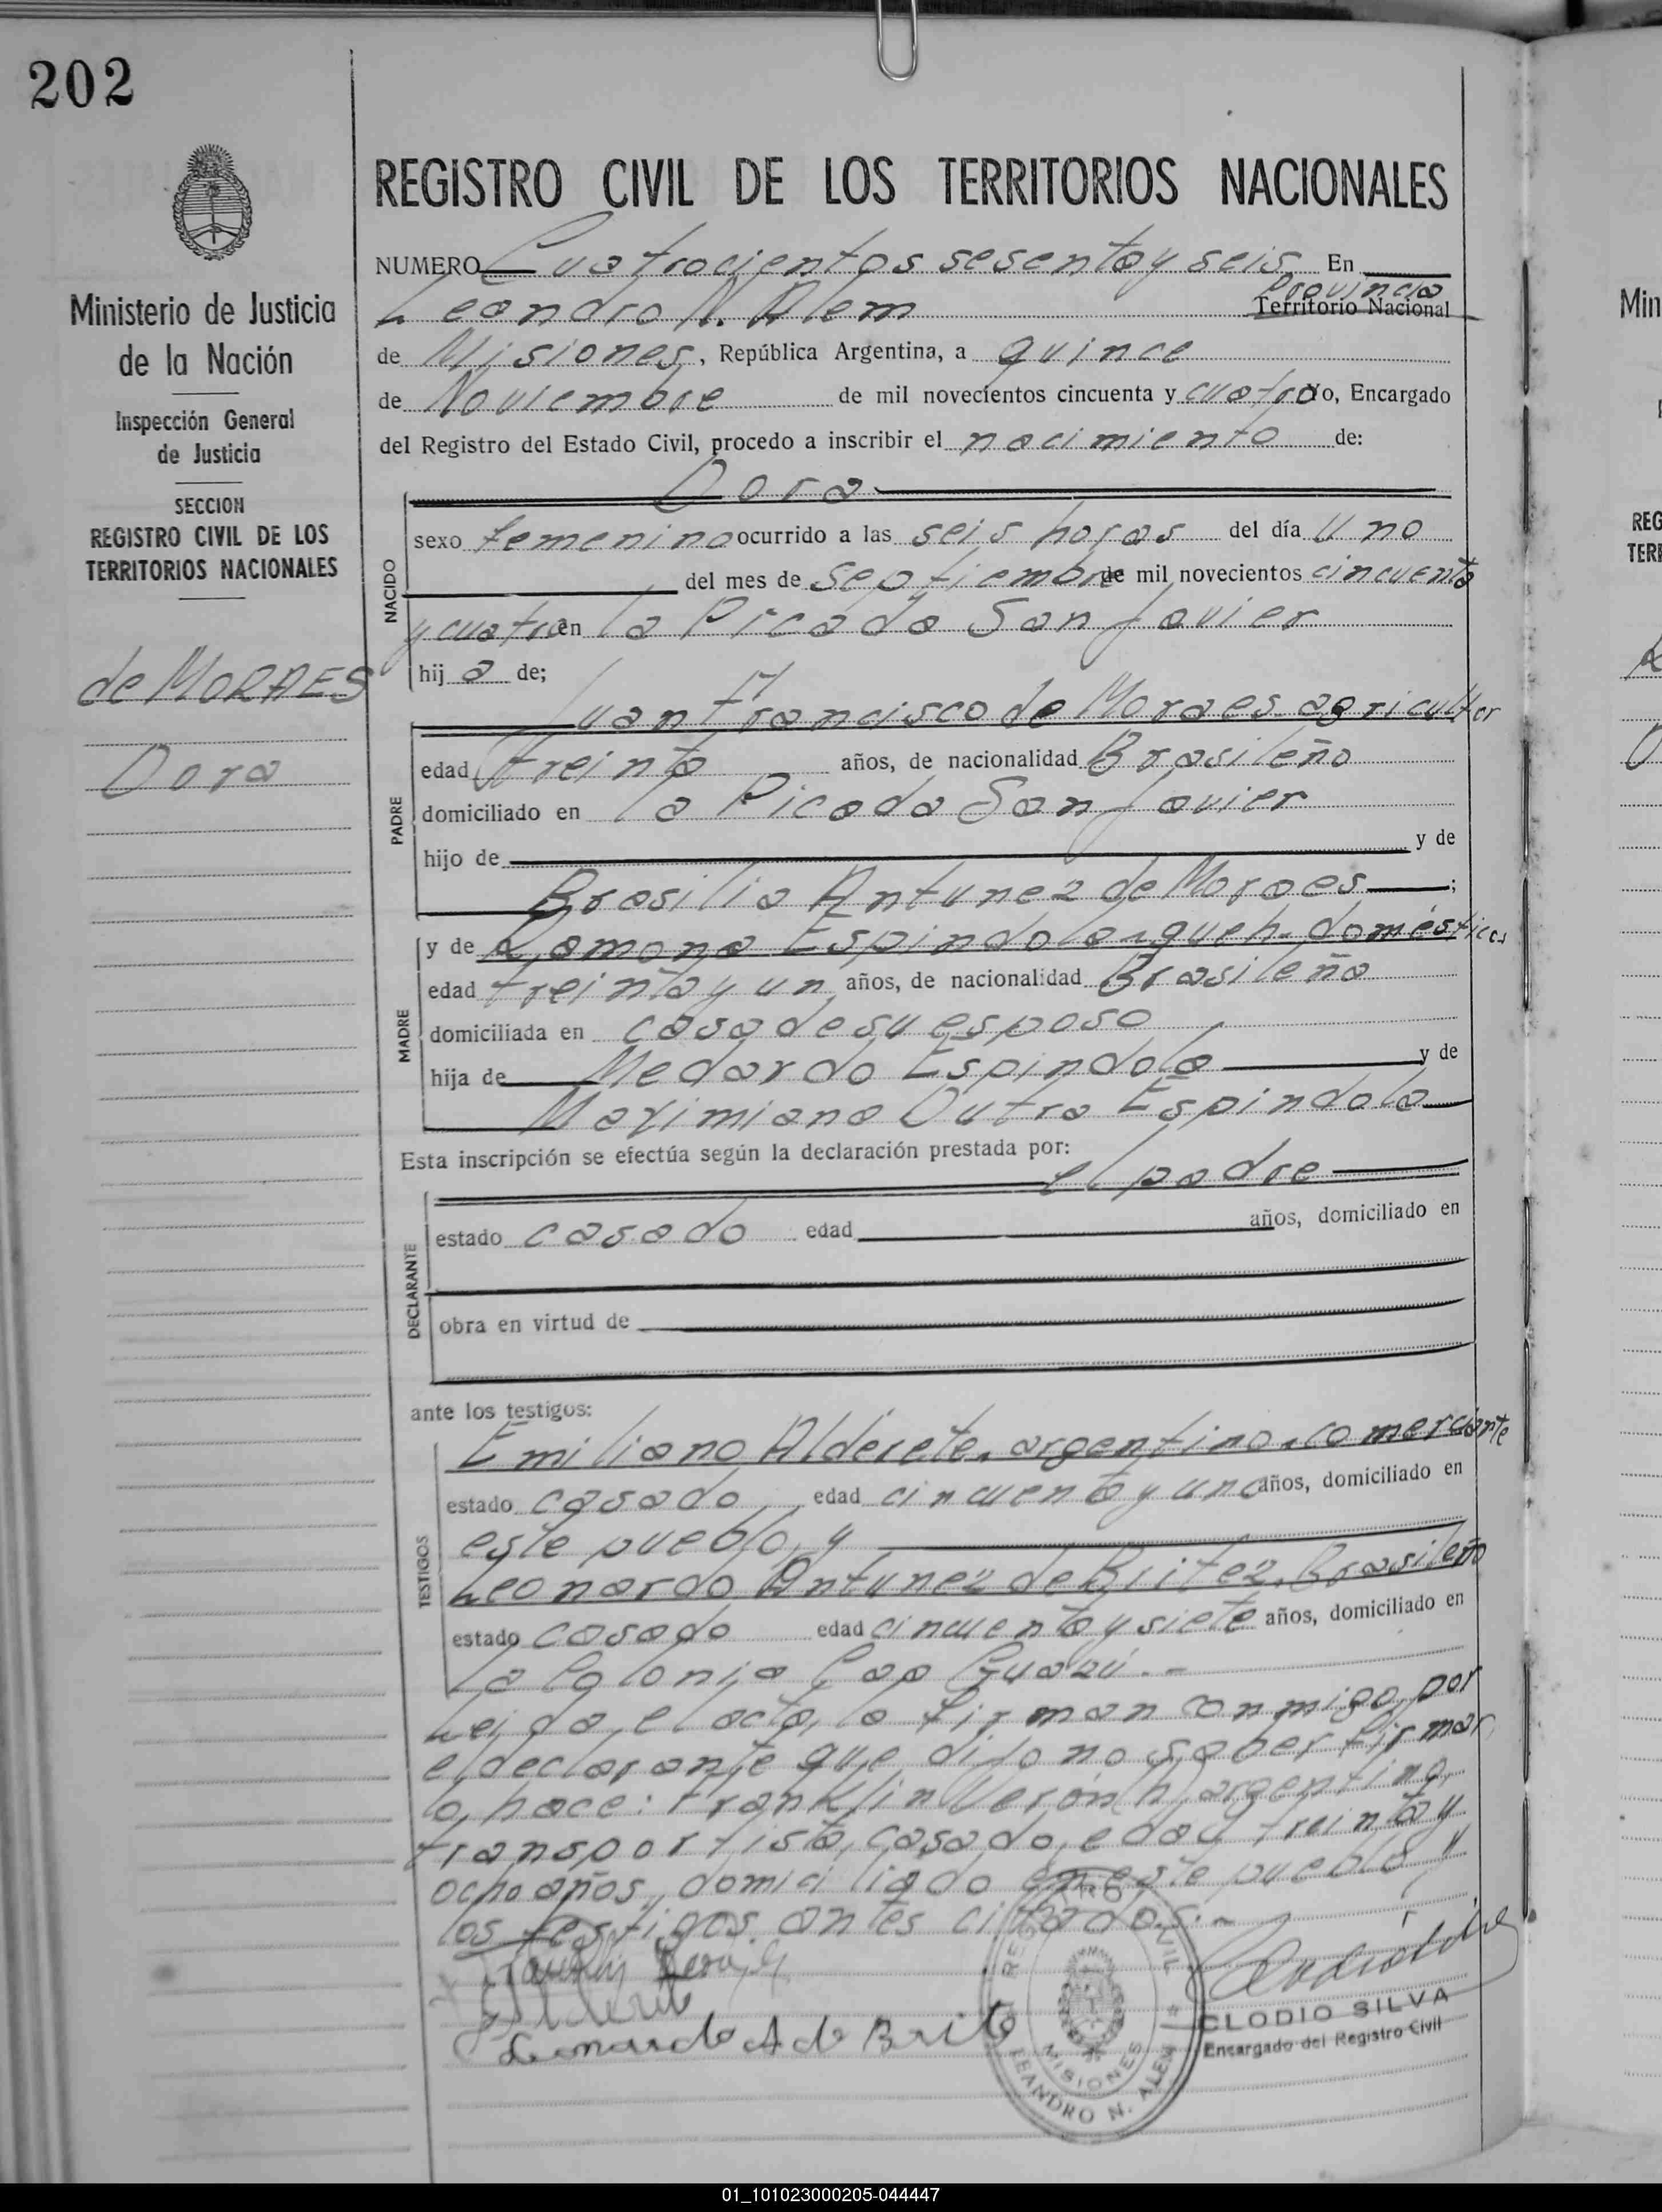 202
REGISTRO CIVIL DE LOS TERRITORIOS NACIONALES
Ministerio de Justicia
de la Nación
Inspección General
de Justicia
SECCION
REGISTRO CIVIL DE LOS
TERRITORIOS NACIONALES
de MORAES
Dora
NUMERO Cuatrocientos sesenta y seis En
Provincia
Leandro N. Alem Territorio Nacional
de Misiones, República Argentina, a quince
de Noviembre de mil novecientos cincuenta y cuatro Yo, Encargado
del Registro del Estado Civil, procedo a inscribir el nacimiento de:
Dora
NACIDO
sexo femenino ocurrido a las seis horas del día uno
del mes de Septiembre de mil novecientos cincuenta
y cuatro en la Picada San Javier
hij a de;
Juan Francisco de Moraes agricultor
PADRE
edad treinta años, de nacionalidad Brasileño
domiciliado en la Picada San Javier
hijo de y de
Brasilia Antunez de Moraes ;
MADRE
y de Ramona Espindola, queh. domésticos
edad treinta y un años, de nacionalidad Brasileña
domiciliada en casa de su esposo
hija de Medardo Espindola y de
Maximiana Dutra Espindola
Esta inscripción se efectúa según la declaración prestada por:
el padre
DECLARANTE
estado casado edad años, domiciliado en
obra en virtud de
ante los testigos:
TESTIGOS
Emiliano Alderete, argentino, comerciante
estado casado edad cincuenta y uno años, domiciliado en
este pueblo, y
Leonardo Antunez de Britez, Brasileño
estado casado edad cincuenta y siete años, domiciliado en
la Colonia Caa Guazú.-
Leida el acta, la firman conmigo, por
el declarante que dijo no saber firmar
lo hace: Franklin Verón (h) argentino,
transportista, casado, edad treinta y
ocho años, domiciliado en este pueblo y
los testigos antes citados.-
Leonardo A de Brito
REGISTRO CIVIL
MISIONES
LEANDRO N. ALEM
CLODIO SILVA
Encargado del Registro Civil
Min
REG
TERR
01_101023000205-044447